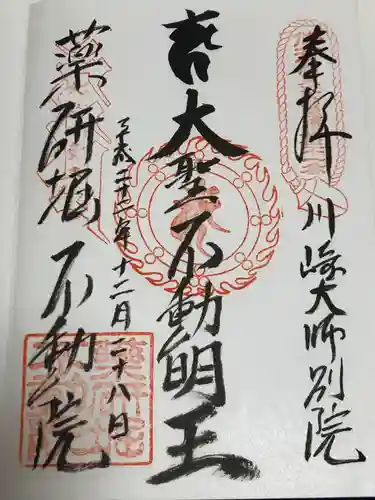 奉拝 川崎大師別院
大聖不動明王
平成二十三年十二月二十八日
薬研堀 不動院